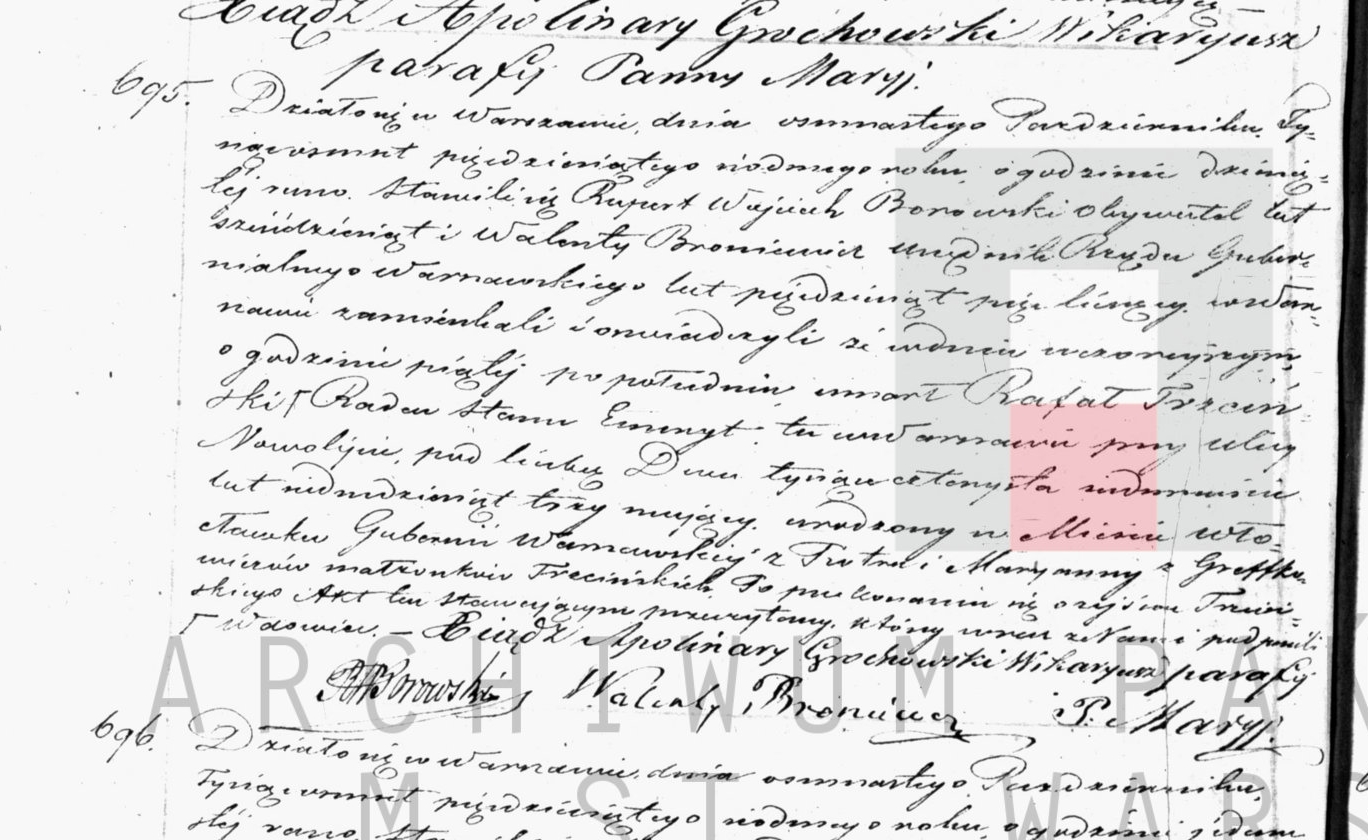 Xiądz Apolinary Grochowski Wikaryusz
parafij Panny Maryj.
695. Działo się w Warszawie, dnia osmnastego Pazdziernika, Ty-
siąc osmset pięćdziesiątego siódmego roku, o godzinie dziesią-
téj rano. Stawili się Rupert Wojciech Borowski Obywatel lat
sześćdziesiąt i Walenty Broniewicz urzędnik Rządu Guber-
nialnego Warszawskiego lat pięćdziesiąt pięć liczący, w War-
szawie zamieszkali i oswiadczyli że w dniu wczorayszym,
o godzinie piątéj po południu, umarł Rafał Trzciń-
ski Γ Radca Stanu Emeryt, tu w Warszawie przy ulicy
Nowolipie, pod liczbą Dwa tysiące czterysta
lat siedmdziesiąt trzy mający, urodzony w Mieście Wło-
cławku Gubernii Warszawskiéj z Piotra i Maryanny z Greffko-
wiczów małżonków Trzcińskich. Po przekonaniu się o zejściu Trzciń-
skiego Akt ten stawającym przeczytany, który wraz z Nami podpisali
Γ Wdowiec. – Xiądz Apolinary Grochowski Wikaryusz parafij
RWBorowski Walenty Broniewicz P. Maryj.
696. Działo się w Warszawie, dnia osmnastego Pazdziernika,
Tysiąc osmset pięćdziesiątego siódmego roku, o godzinie
rano.
ARCHIWUM PA
M ST WARS